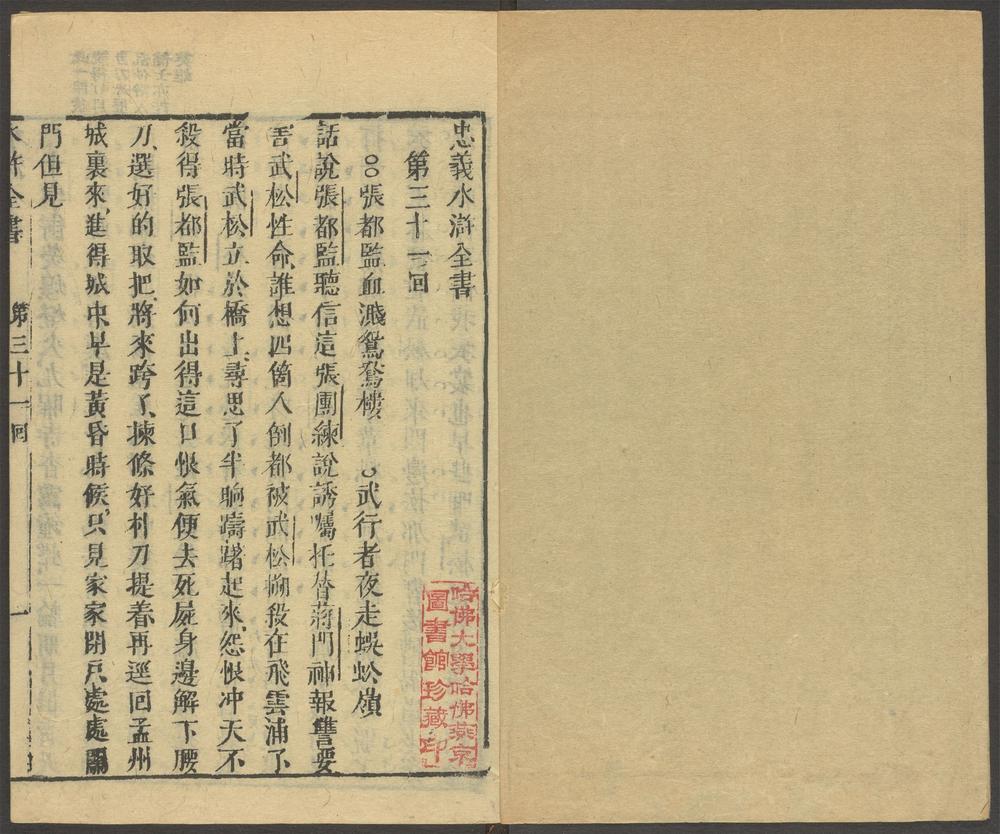 忠義水滸全書
第三十一回
張都監血濺鴛鴦樓 武行者夜走蜈蚣嶺
話說張都監聽信這張團練說誘囑托替蔣門神報讐要
害武松性命誰想四箇人倒都被武松搠殺在飛雲浦了
當時武松立於橋上尋思了半晌躊躇起來怨恨冲天不
殺得張都監如何出得這口恨氣便去死屍身邊解下腰
刀選好的取把將來跨了揀條好朴刀提着再逕回孟州
城裏來進得城中早是黃昏時候只見家家閉戶處處關
門但見
水滸全書 第三十一回 一
哈佛大學哈佛燕京
圖書館珍藏印